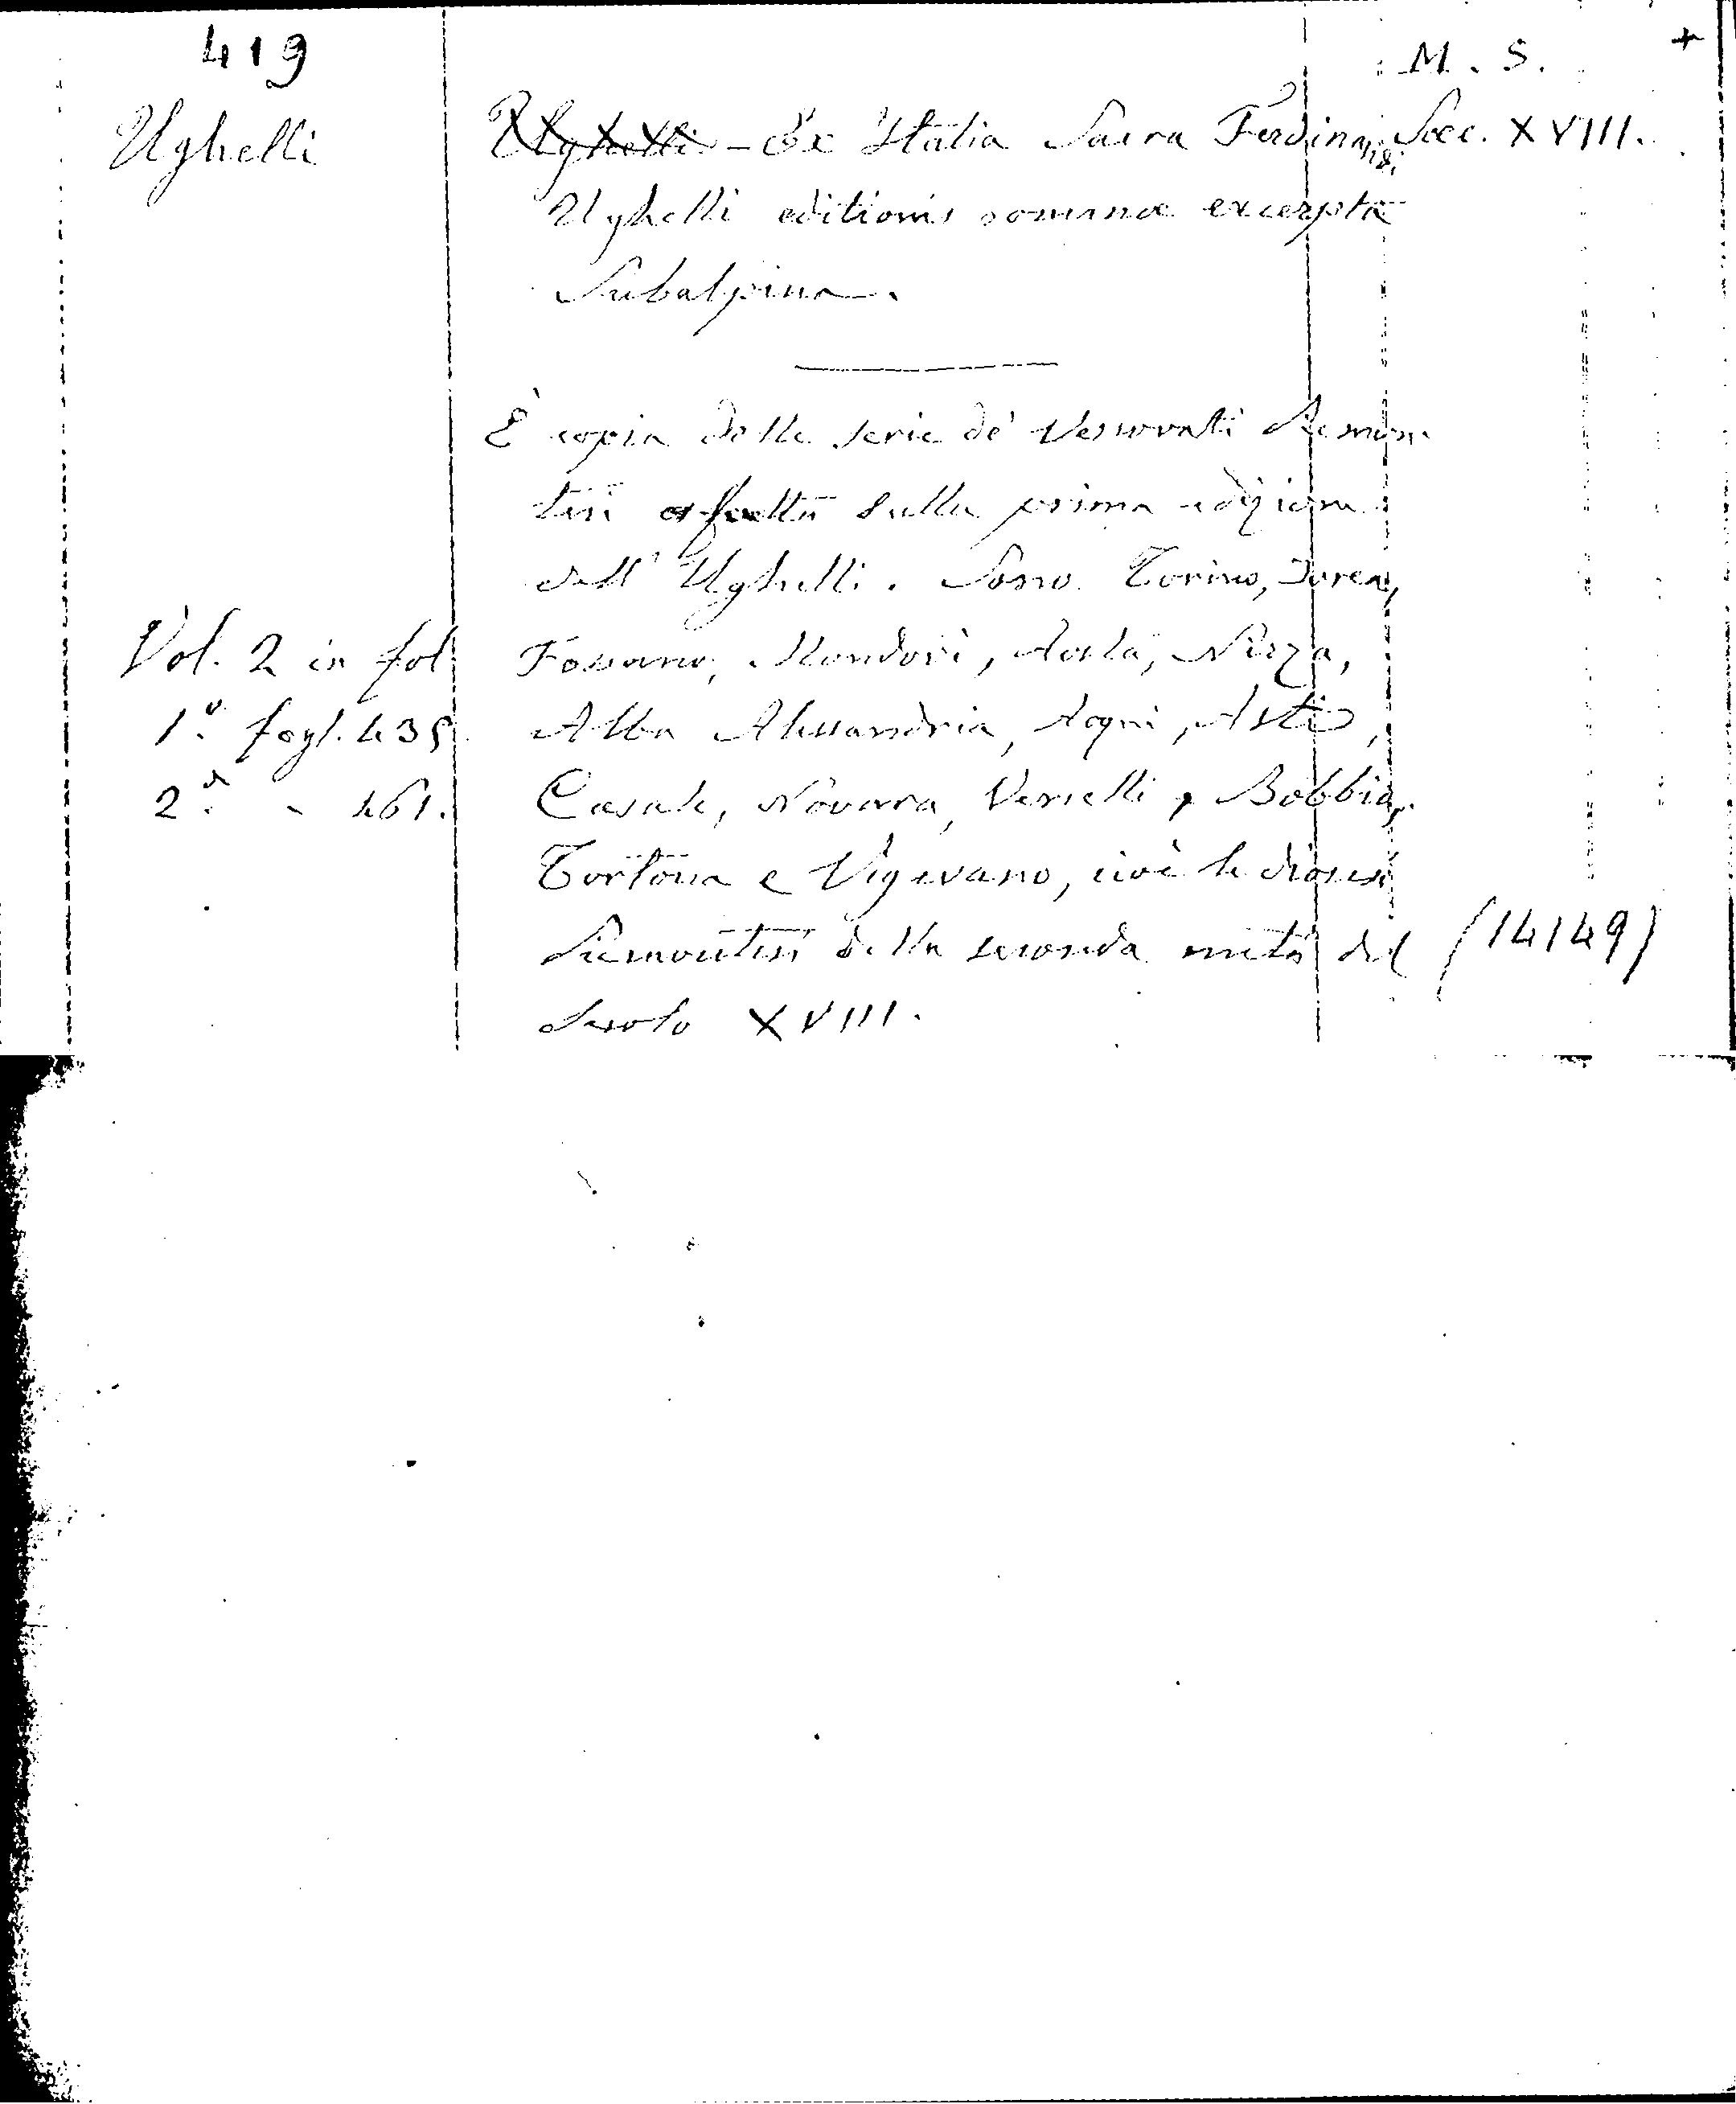 419
M. S. +
Ughelli
Ughelli - Ex Italia Sacra Ferdinandi Saec. XVIII.
Ughelli editionis romanae excerpta
Subalpina.
È copia delle serie de' Vescovati Piemon
tesi fatta sulla prima edizione
dell' Ughelli. Sono Torino, Ivrea,
Vol. 2 in fol. Fossano, Mondovì, Aosta, Nizza,
1º fogl. 435. Alba Alessandria, Acqui, Asti,
2º - 461. Casale, Novara, Vercelli, Bobbio,
Tortona e Vigevano, cioè le diocesi
Piemontesi della seconda metà del (14149)
Secolo XVIII.